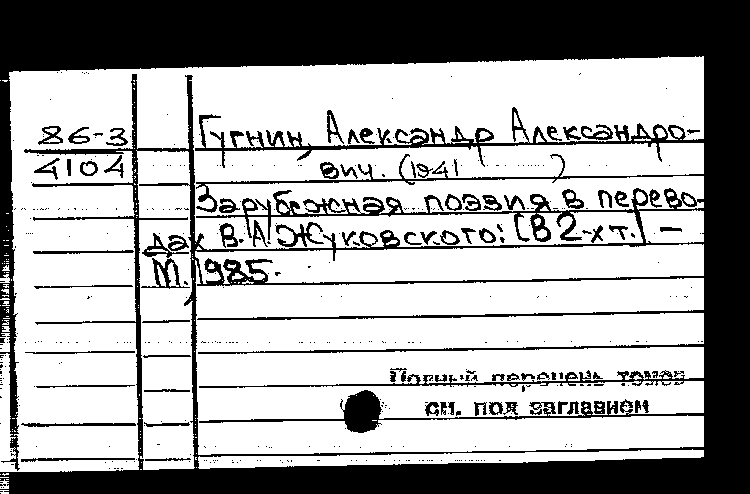 86-3
4104
Гугнин, Александр Александро-
вич. (1941      )
Зарубежная поэзия в перево-
дах В.А. Жуковского: [В 2-х т.] –
М., 1985.
Полный перечень томов
см. под заглавием